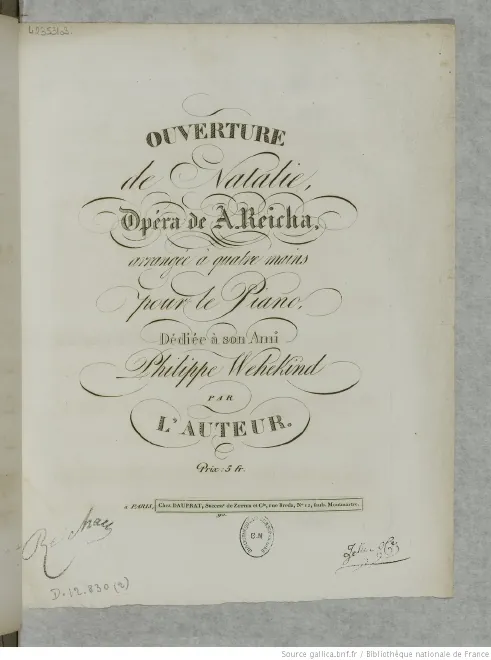 OUVERTURE
de Natalie,
Opéra de A. Reicha,
arrangée à quatre mains
pour le Piano,
Dédiée à son Ami
Philippe Wehekind
PAR
L'AUTEUR.
Prix: 5 fr.
A PARIS, Chez DAUPRAT, Succr. de Zerren et Cie, rue Breda, No 12, faub. Monmartre.
D. 12.830 (2)
Source gallica.bnf.fr / Bibliothèque nationale de France